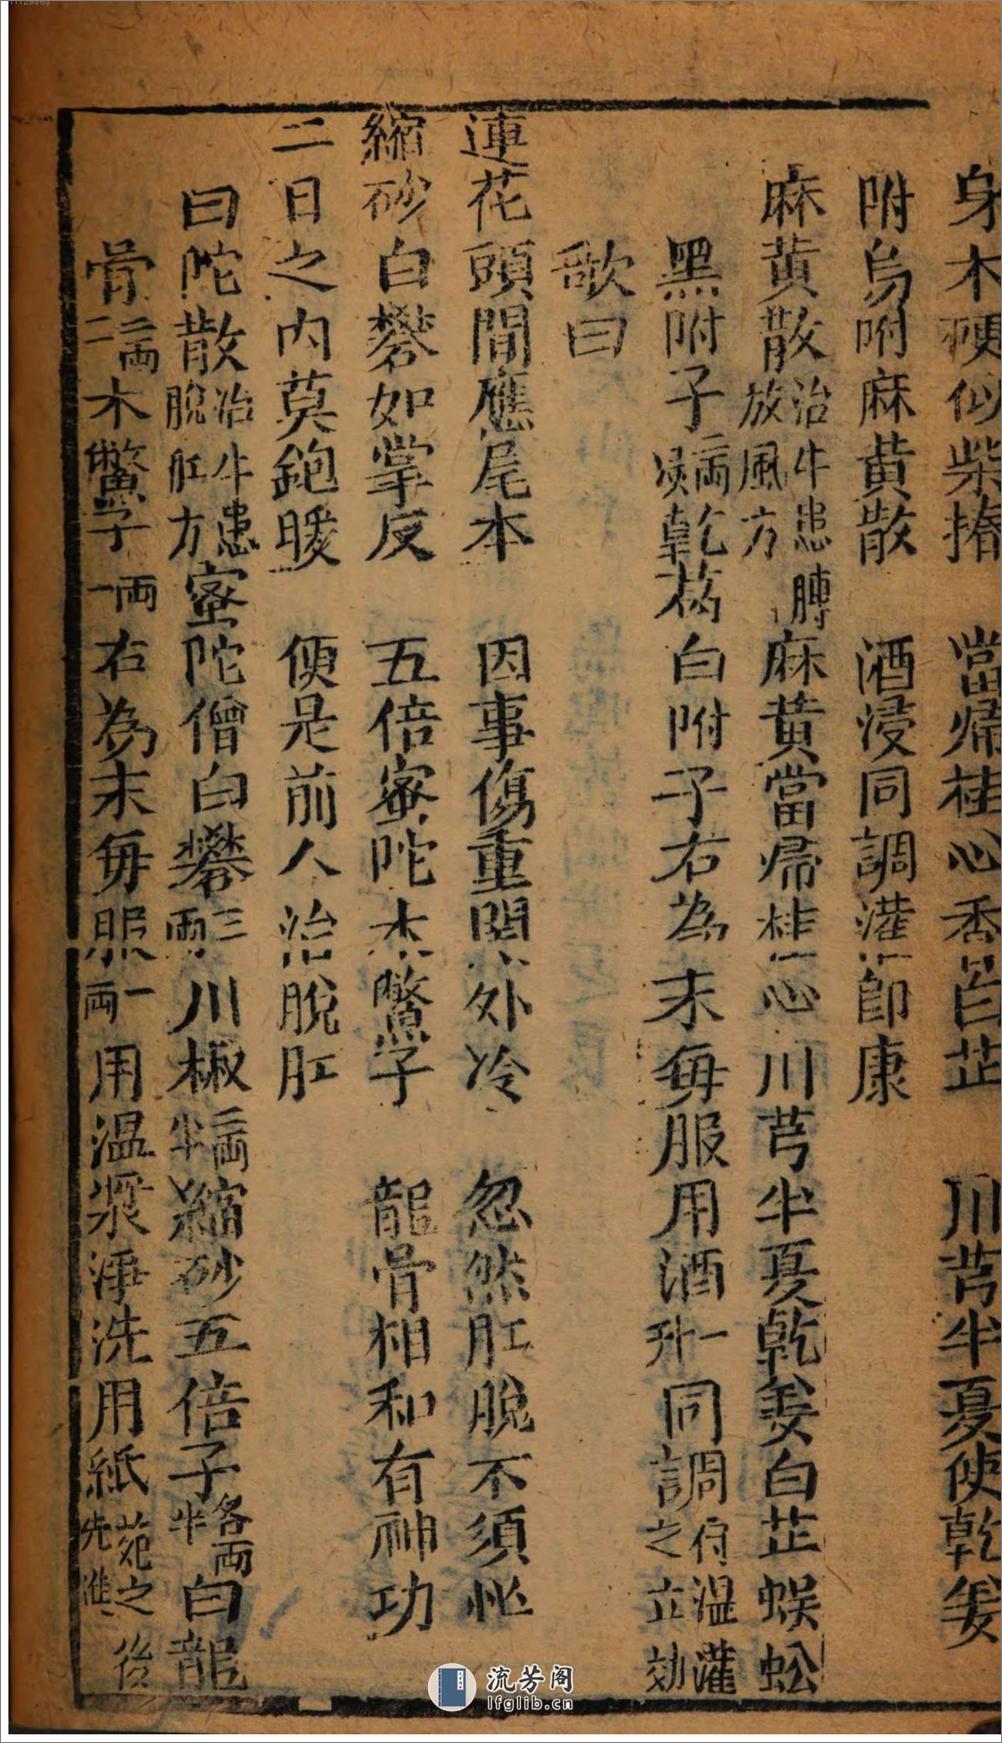 身木硬似柴椿　當帰桂心香白芷　川芎半夏使乾姜
附烏附麻黄散　酒浸同調灌即康
麻黄散治牛患膊放風方麻黄當帰桂心川芎半夏乾姜白芷蜈蚣
黑附子兩乾葛白附子右為末每服用酒一升同調之立効
歌曰
連花頭間應尾本　因事傷重閧外冷　忽然肛脫不須忙
縮砂白礬如掌反　五倍蜜陀木鱉子　龍骨相和有神功
二日之內莫飽暖　便是前人治脫肛
曰陀散治牛患脫肛方蜜陀僧白礬三兩川椒二兩半縮砂五倍子各半兩白龍
骨二兩木鱉子一兩右為末每服一兩用溫漿淨洗用紙
流芳阁
lfglib.cn